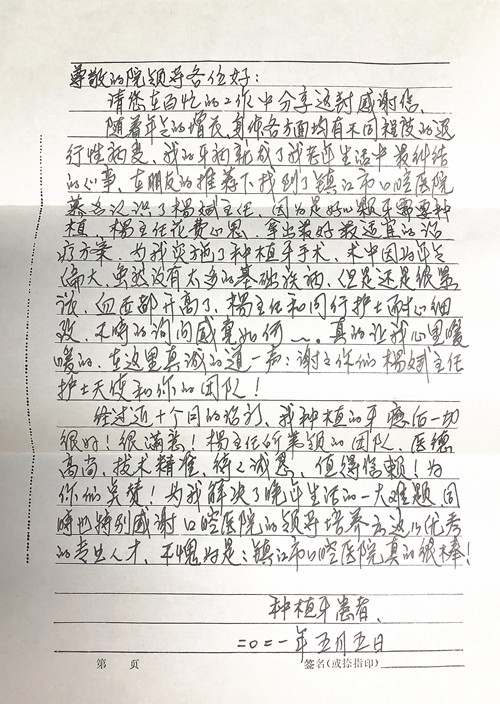 尊敬的院领导各位好:
请您在百忙的工作中分享这封感谢信。
随着年岁的增长,身体各方面均有不同程度的退
行性病变,我的牙病就成了我老年生活中最纠结
的心事,在朋友的推荐下找到了镇江市口腔医院
慕名认识了杨斌主任,因为是好几颗牙需要种
植,杨主任花费心思,拿出最好最适宜的治
疗方案,为我实施了种植牙手术,术中因为年岁
偏大,虽然没有太多的基础疾病,但是还是很紧
张,血压都升高了,杨主任和同行护士耐心细
致,不时的询问感觉如何~~。真的让我心里暖
暖的,在这里真诚的道一声:谢谢你们杨斌主任
护士天使和你的团队!
经过近十个月的治疗,我种植的牙愈后一切
很好!很满意!杨主任所带领的团队,医德
高尚,技术精准,待人诚恳,值得信赖!为
你们点赞!为我解决了晚年生活的一大难题 同
时也特别感谢口腔医院的领导培养出这么优秀
的专业人才,不愧为是:镇江市口腔医院真的很棒!
种植牙患者、
二〇二一年五月五日
第 页 签名(或捺指印)